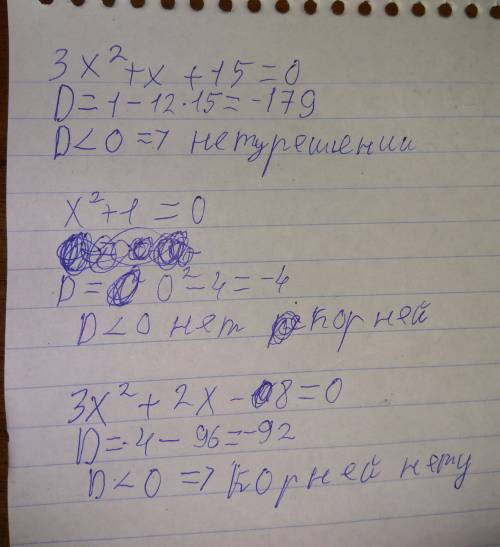 3x²+x+15=0
D=1-12·15=-179
D<0 => нету решении
x²+1=0
D= 0²-4=-4
D<0 нет корней
3x²+2x-8=0
D=4-96=-92
D<0 => Корней нету